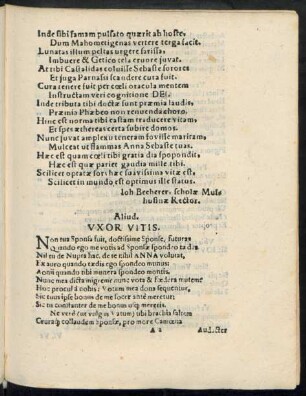 Inde sibi famam pulsato quærit ab hoste,
Dum Mahometigenas vertere terga facit.
Lunatas illum peltas urgere sarissa,
Imbuere & Getico tela cruore juvat.
At tibi Castalidas coluisse Sebaste sorores
Et juga Parnassi scandere cura fuit.
Cura tenere fuit per cœli oracula mentem
Instructam veri cognitione DEI.
Inde tributa tibi doctæ sunt præmia laudis,
Præmia Phœbeo non renuenda choro.
Hinc est norma tibi rastam traducere vitam
Et spes æthereas certa subire domos.
Nunc juvat amplexu teneram fovisse maritam,
Mulceat ut flammas Anna Sebaste tuas.
Hæc est quam cœli tibi gratia dia spopondit,
Hæc est quæ pariet gaudia mille tibi.
Scilicet optatæ sors hæc suavissima vitæ est,
Scilicet in mundo est optimus ille status.
Ioh. Brcherer, scholæ Mul-
husinæ Rector.
Aliud.
VXOR VITIS.
Non tua sponsa fuit, doctissime Sponse, futura
Quando ego me votis ad sponsæ spondeo tædas
Nil en de Nupta huc, de te nihil ANNA volurat,
Aeque quando tædia ego spondeo montis
Annii quando tibi munera spondeo montis.
Nunc mea dictamigerunt nunc vota & fœdera mutent?
Huc procul â nobis: Votum mea dona sequentur,
Sic tuus ipse bonus de me socer ante meretur;
Sic tu constanter de me bonus usq; mereris.
Ne verè cur vulgus Vatum; ubi brachia saltem
Cruraq; collaudem sponsæ, pro more Camœnæ
A 2
Auditer